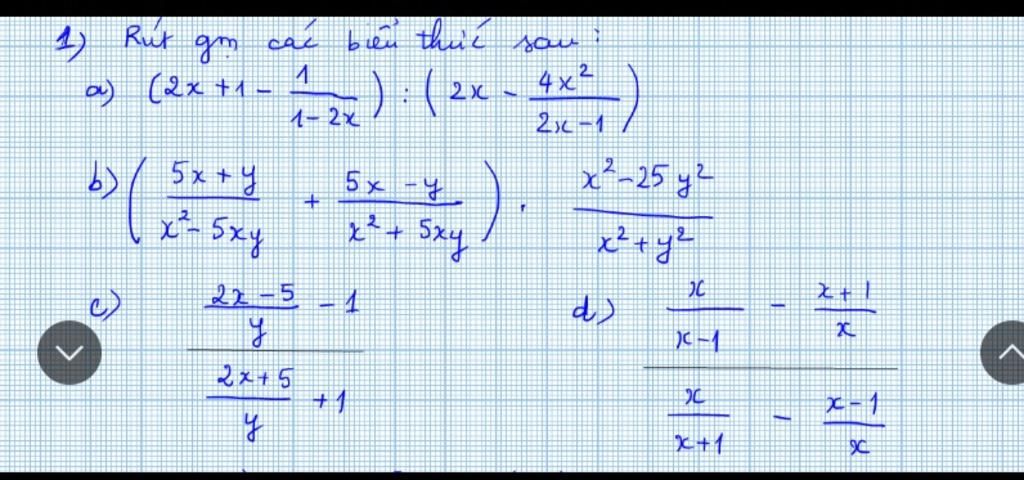 1) Rút gọn các biểu thức sau :
a) (2x + 1 - 1/(1 - 2x)) : (2x - 4x²/(2x - 1))
b) ((5x + y)/(x² - 5xy) + (5x - y)/(x² + 5xy)) . (x² - 25y²)/(x² + y²)
c) ((2x - 5)/y - 1)/((2x + 5)/y + 1) d) (x/(x - 1) - (x + 1)/x)/(x/(x + 1) - (x - 1)/x)